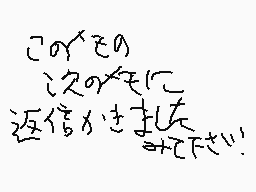 このメモの
次のメモに
返信かきました
みて下さい!